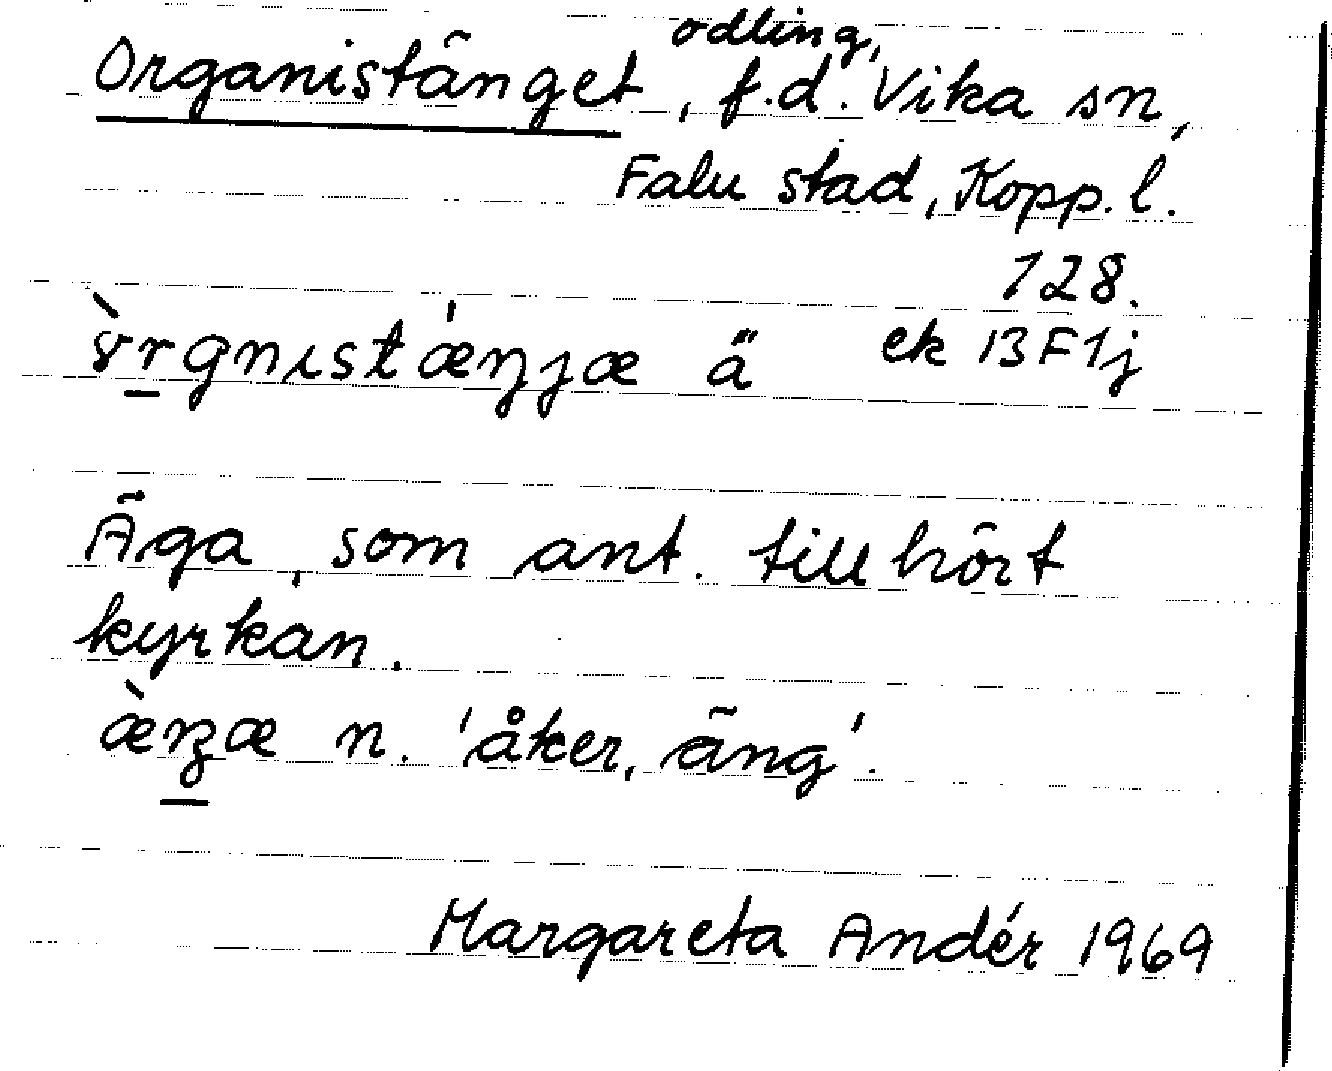 Organistänget, odling, f.d. Vika sn,
Falu stad, Kopp. l.
128.
ek 13F1j
Äga, som ant. tillhört
kyrkan.
n. 'åker, äng'.
Margareta Andér 1969